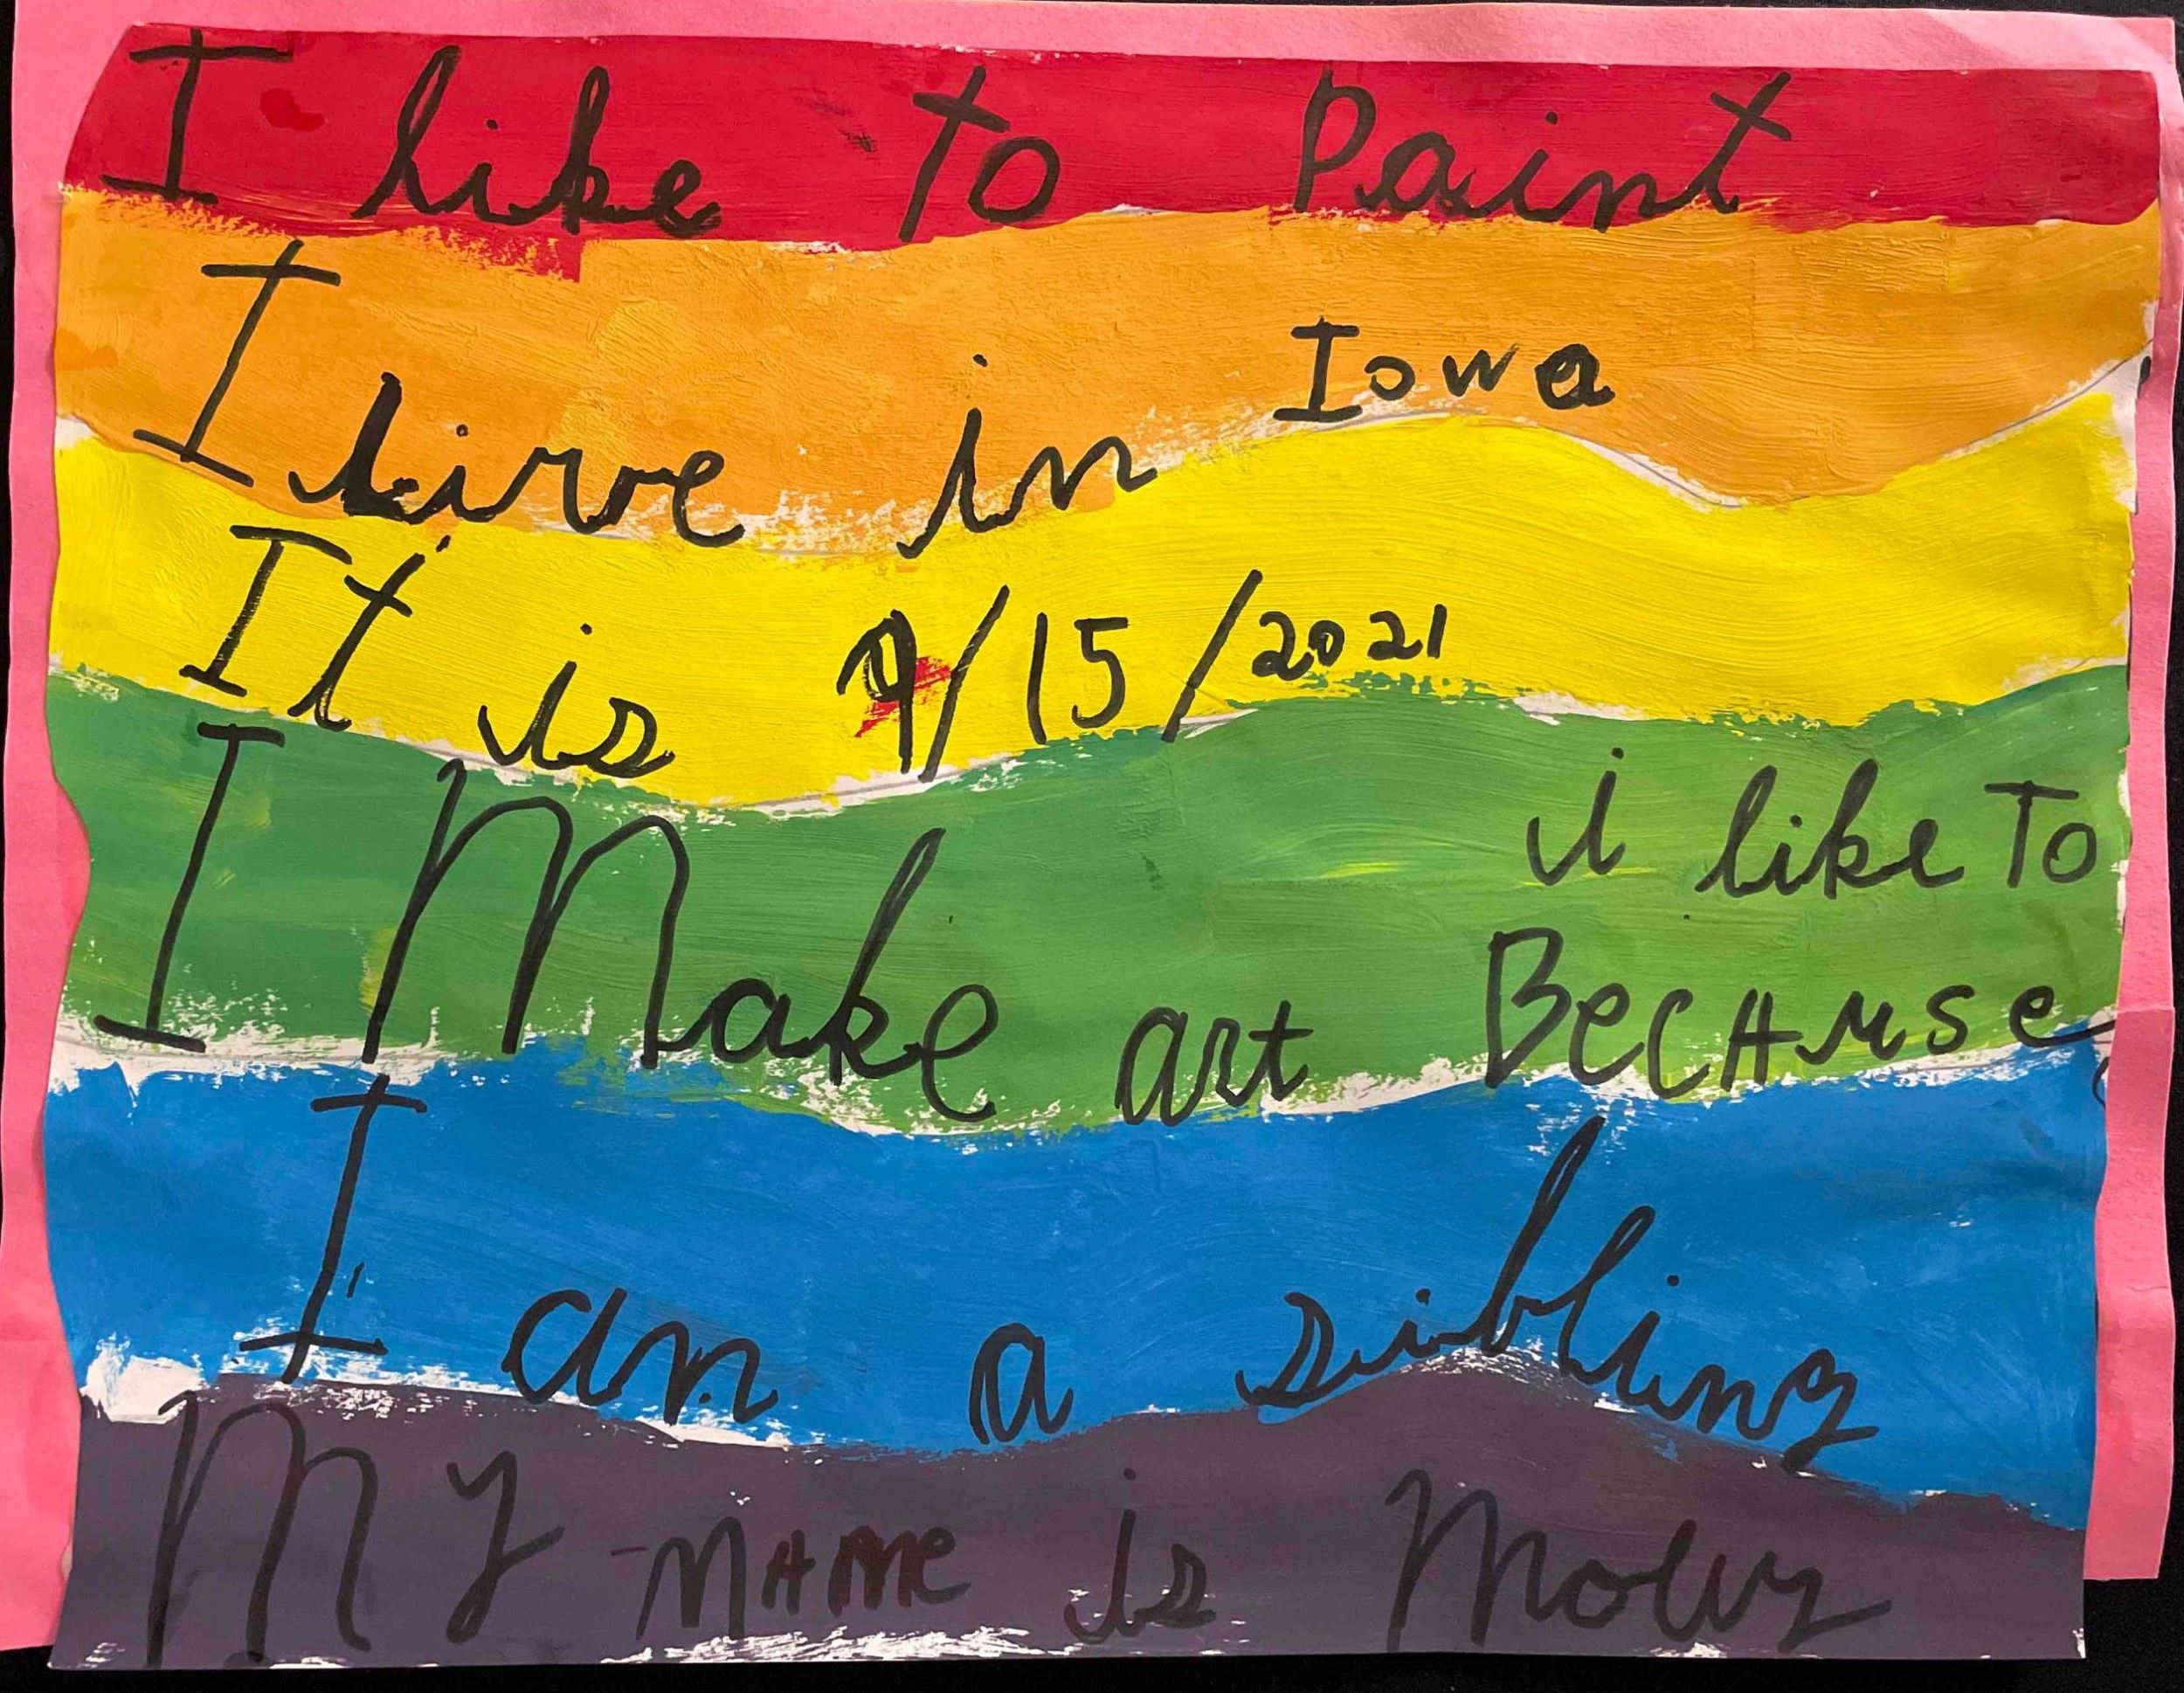 I like to Paint
I live in Iowa
It is 9/15/2021
I Make art BecAuse
i like To
I am a sibling
My nAme is Molly